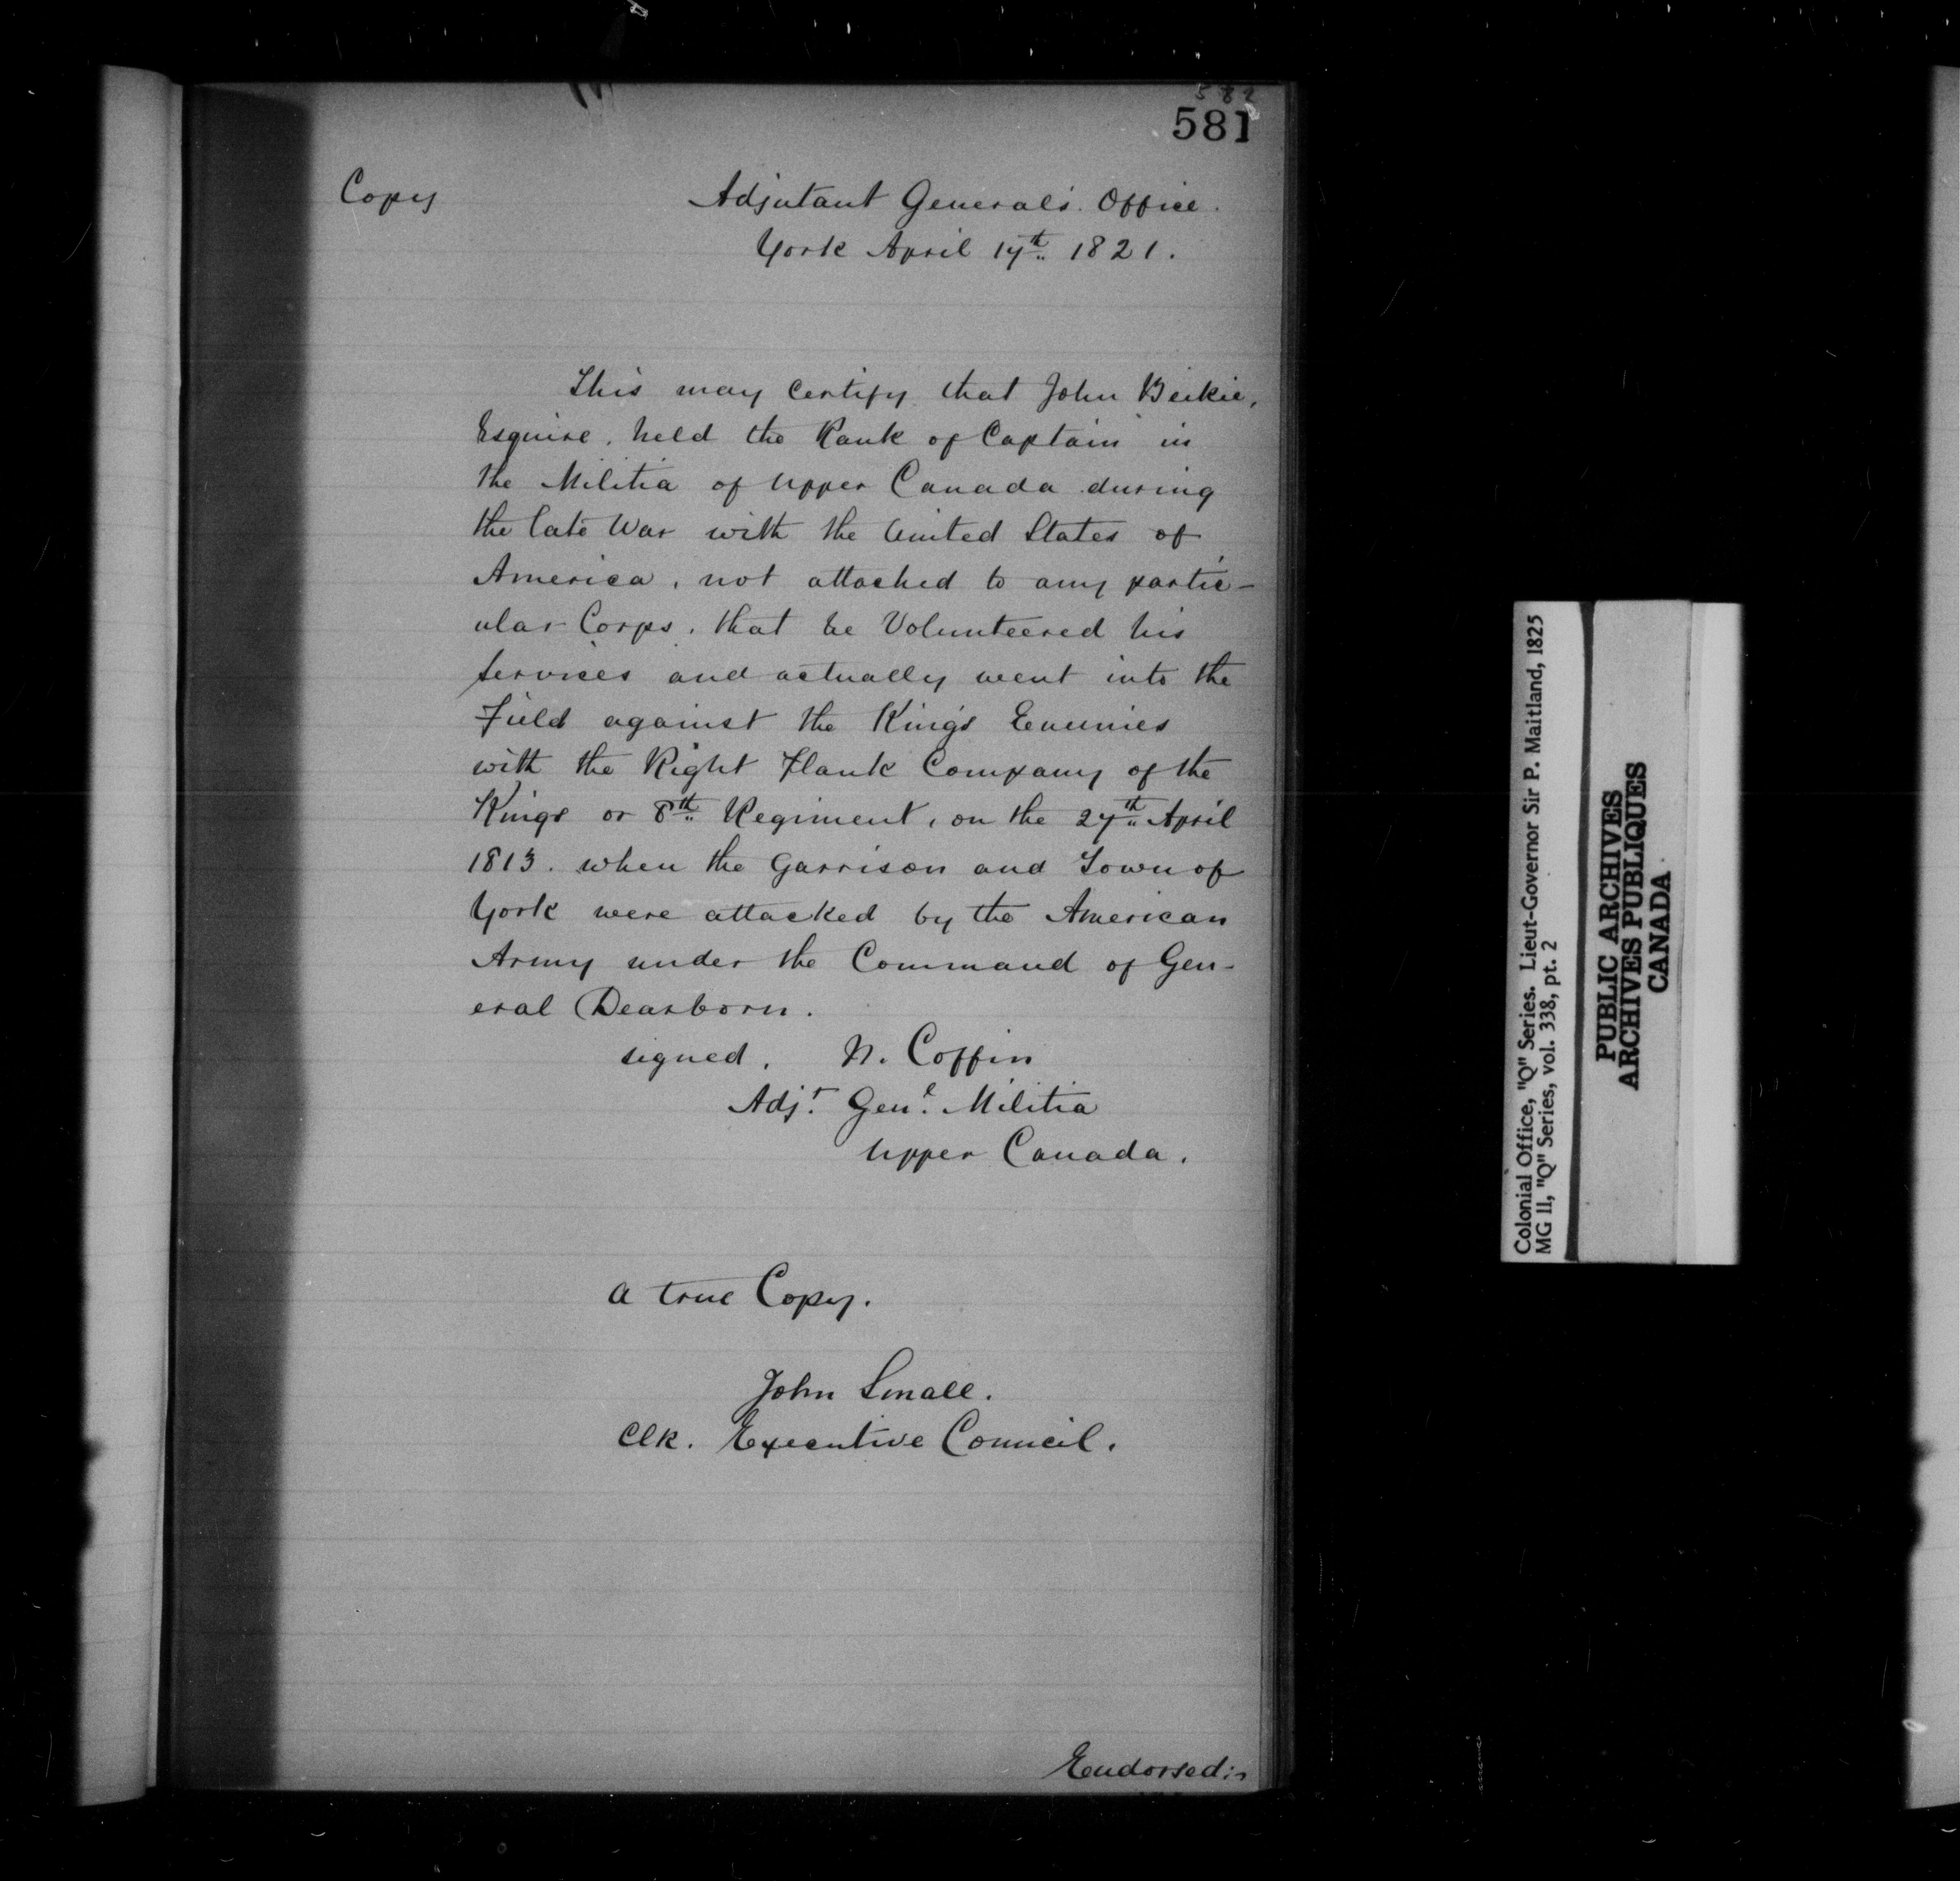 582
581
Copy
Adjutant General's Office.
York April 17th 1821.
This may certify that John Beikie,
Esquire, held the Rank of Captain in
the Militia of Upper Canada during
the late War with the United States of
America, not attached to any partic-
ular Corps, that he Volunteered his
services and actually went into the
Field against the King's Enemies
with the Right Flank Company of the
Kings or 8th Regiment, on the 27th April
1813. when the Garrison and Town of
York were attacked by the American
Army under the Command of Gen-
eral Dearborn.
signed, N. Coffin
Adjt Genl Militia
Upper Canada.
A true Copy.
John Small.
Clk. Executive Council.
Endorsed:-
Colonial Office, "Q" Series. Lieut-Governor Sir P. Maitland, 1825
MG 11, "Q" Series, vol. 338, pt. 2
PUBLIC ARCHIVES
ARCHIVES PUBLIQUES
CANADA